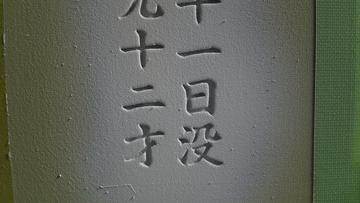 十一日没
九十二才